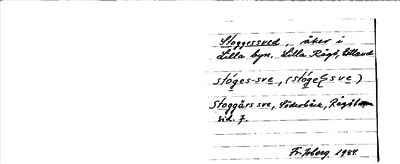 Stoggessved, åker i
Lilla byn, Lilla Rågö, Estland
stóges-sve, (stóge sve)
Stoggårs sve, Söderbäck, Rågö
sid. 7.
1984.